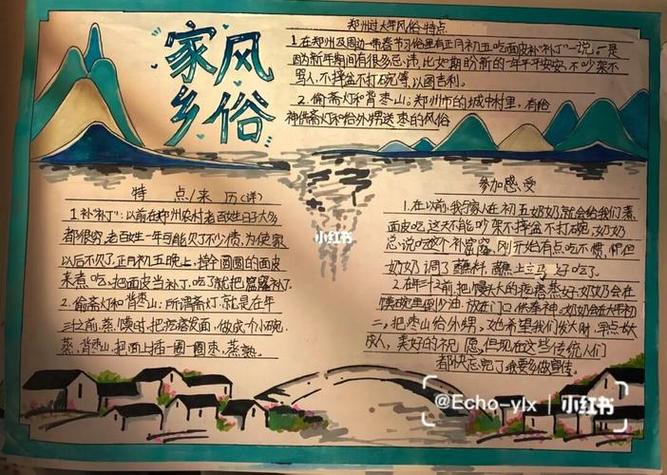 家风
乡俗
郑州过大年风俗特点
1.在郑州及周边一带春节习俗里有正月初五吃面皮补"补丁"一说,一是
因为新年期间有很多忌讳,比如期盼新的一年平平安安,不吵架不
骂人,不摔盆不打碗等,以图吉利。
2.偷斋灯和背枣山:郑州市的城中村里,有给
神供斋灯和给外甥送枣的风俗
特点/来历(详)
1.补"补丁":以前在郑州农村老百姓日子大多
都很穷,老百姓一年可能欠了不少债,为使家
以后不欠了正月初五晚上,擀个圆圆的面皮
来煮吃,把面皮当补丁,吃了就把窟窿补了.
2.偷斋灯和背枣山:所谓斋灯,就是在年
三十之前,蒸馍时,把疙瘩发面,做成个小碗
蒸,背枣山,把面上插一圈一圈枣,蒸熟。
参加感受
1.在以前,我家人在初五奶奶就会给我们煮
面皮吃,这天不能吵架不摔盆不打碗,奶奶
总说吃这个补窟窿,刚开始有点吃不惯,但
奶奶调了蘸料,蘸上立马好吃了.
2.在年三十前,把馍大的疙瘩蒸好,奶奶会在
馍碗里倒少油,放在门口供奉神,奶奶会在大年初
二,把枣山给外甥,她希望我们发大财,早点长大
成人,美好的祝愿,但现在这些传统人们
都快忘完了,我要多做宣传.
小红书
@Echo-ylx | 小红书